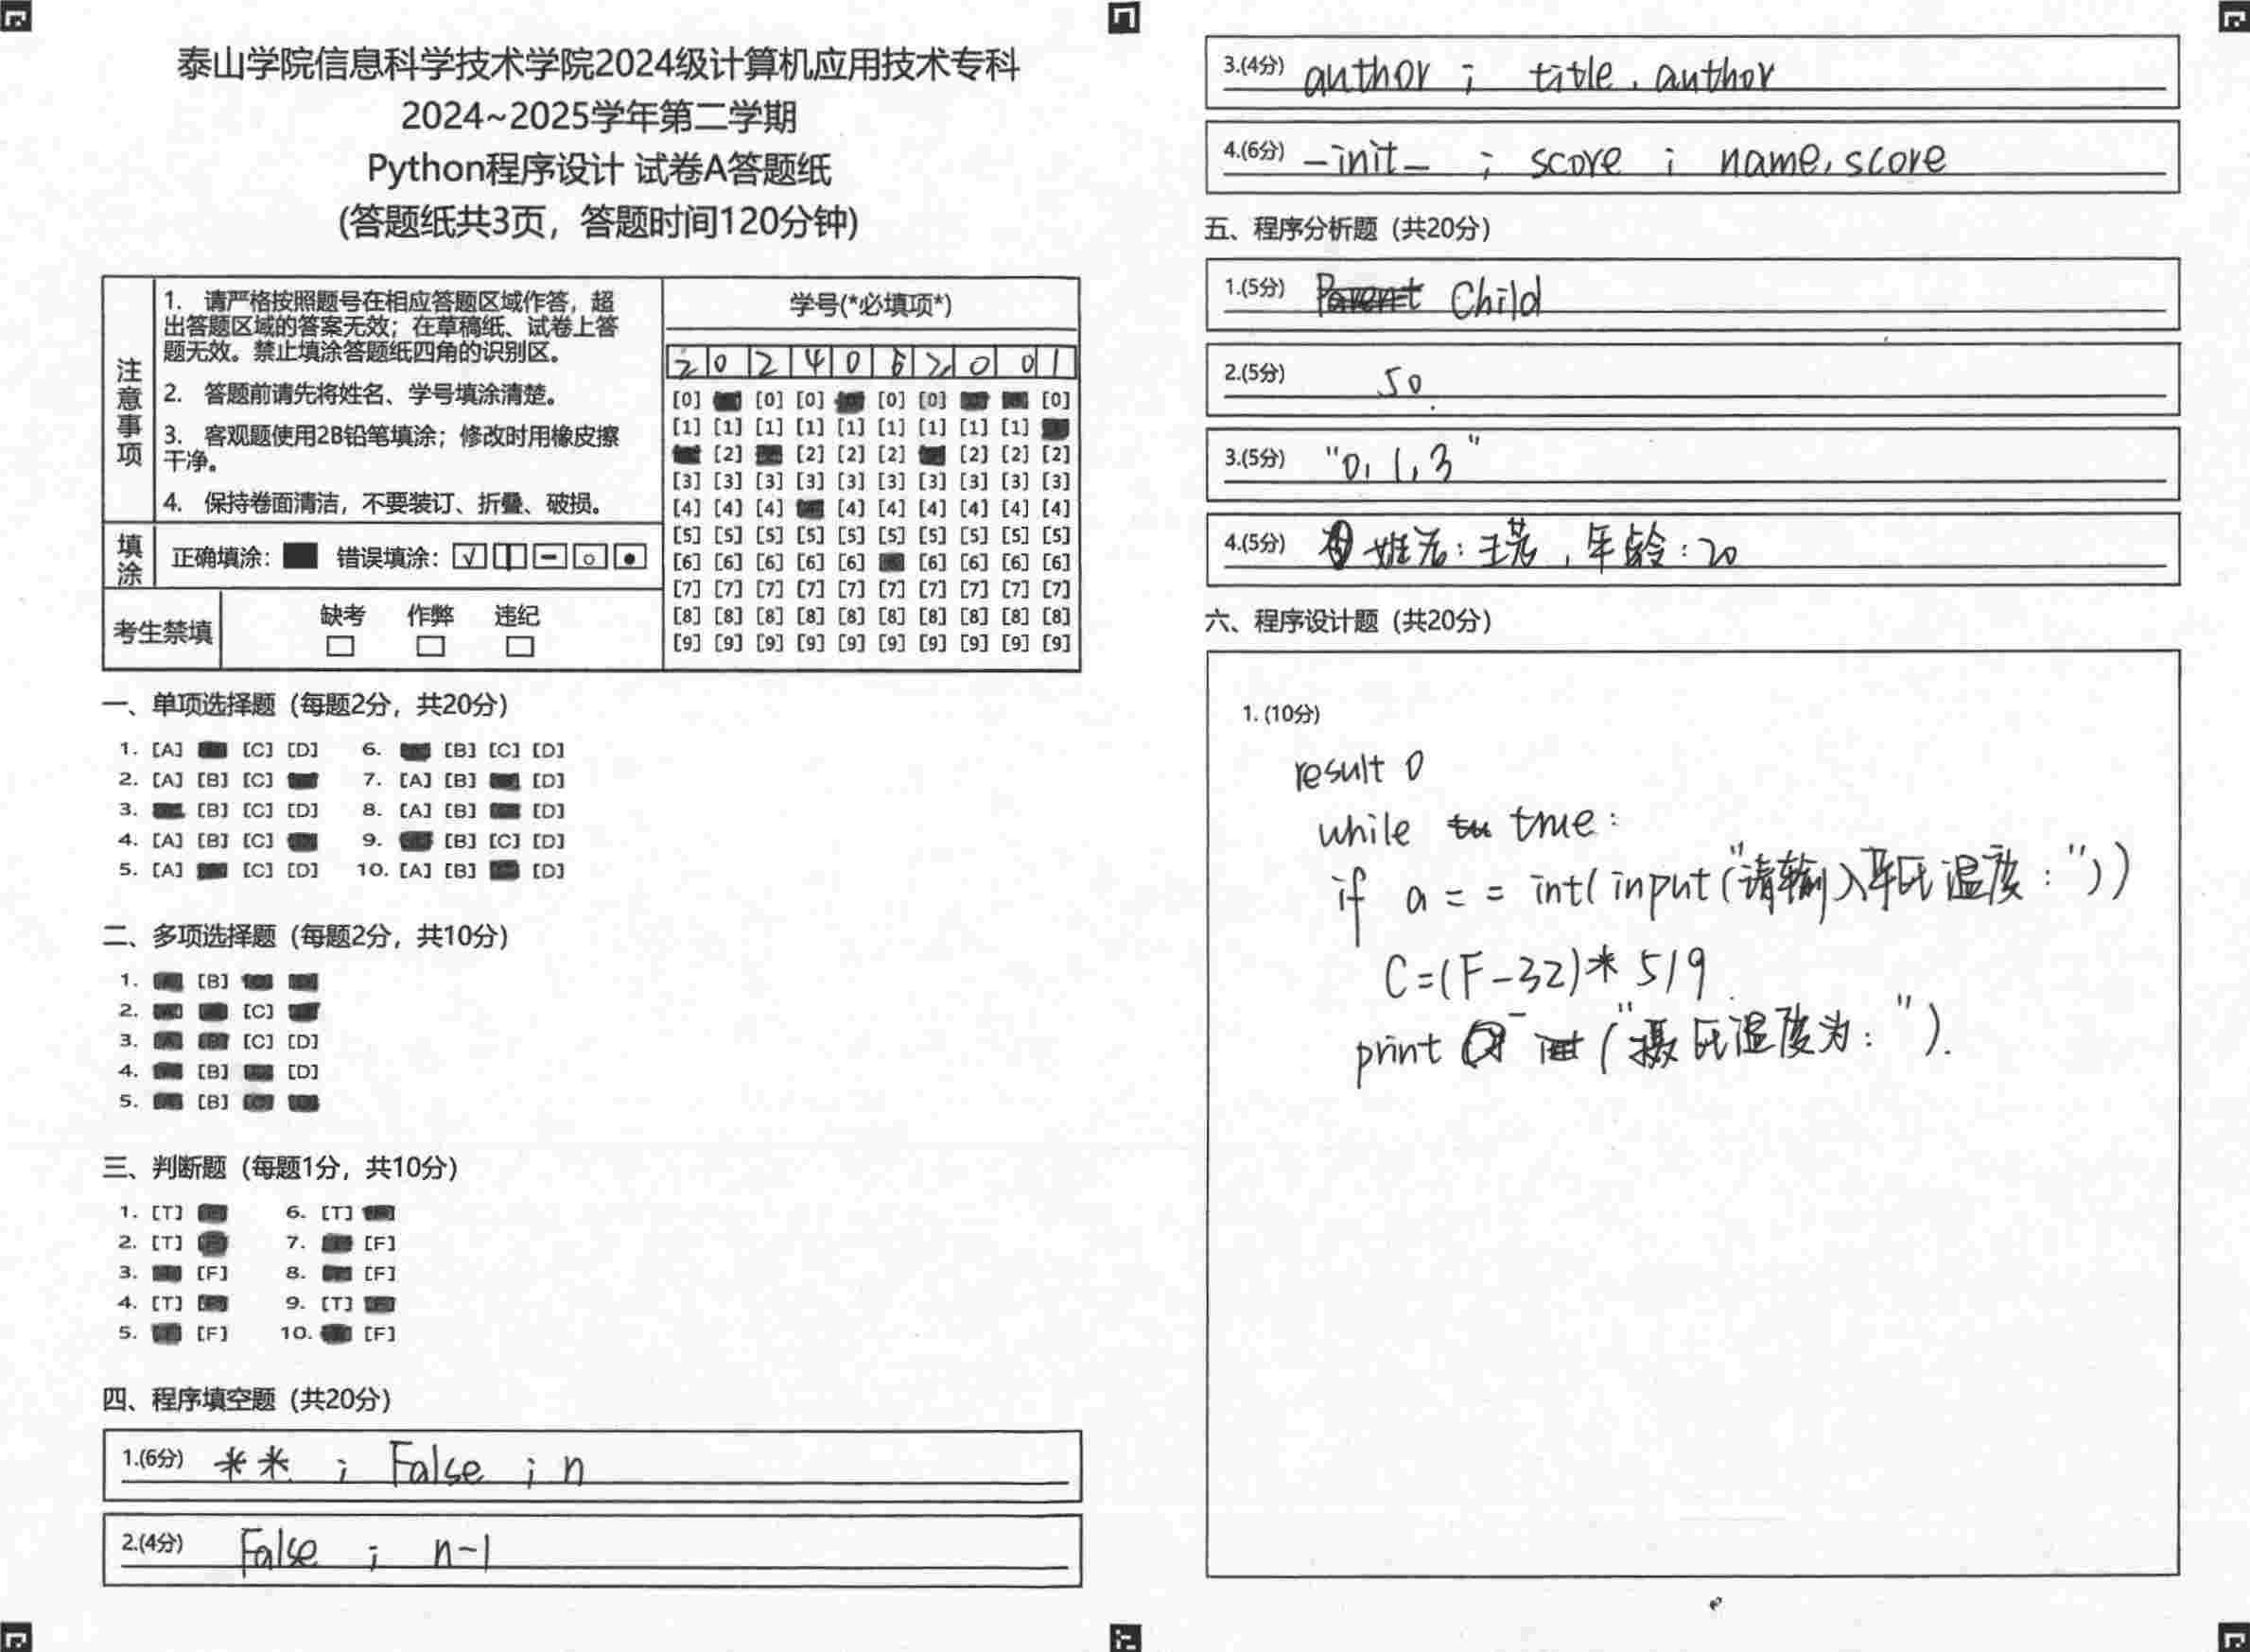 泰山学院信息科学技术学院2024级计算机应用技术专科
2024~2025学年第二学期
Python程序设计 试卷A答题纸
(答题纸共3页，答题时间120分钟)
注意事项
1. 请严格按照题号在相应答题区域作答，超
出答题区域的答案无效；在草稿纸、试卷上答
题无效。禁止填涂答题纸四角的识别区。
2. 答题前请先将姓名、学号填涂清楚。
3. 客观题使用2B铅笔填涂；修改时用橡皮擦
干净。
4. 保持卷面清洁，不要装订、折叠、破损。
填涂
正确填涂： 错误填涂：
考生禁填
缺考 作弊 违纪
学号(*必填项*)
2 0 2 4 0 6 2 0 0 1
[0] [0] [0] [0] [0] [0] [0]
[1] [1] [1] [1] [1] [1] [1] [1] [1]
[2] [2] [2] [2] [2] [2] [2]
[3] [3] [3] [3] [3] [3] [3] [3] [3] [3]
[4] [4] [4] [4] [4] [4] [4] [4] [4]
[5] [5] [5] [5] [5] [5] [5] [5] [5] [5]
[6] [6] [6] [6] [6] [6] [6] [6] [6]
[7] [7] [7] [7] [7] [7] [7] [7] [7] [7]
[8] [8] [8] [8] [8] [8] [8] [8] [8] [8]
[9] [9] [9] [9] [9] [9] [9] [9] [9] [9]
一、单项选择题（每题2分，共20分）
1. [A] [C] [D] 6. [B] [C] [D]
2. [A] [B] [C] 7. [A] [B] [D]
3. [B] [C] [D] 8. [A] [B] [D]
4. [A] [B] [C] 9. [B] [C] [D]
5. [A] [C] [D] 10. [A] [B] [D]
二、多项选择题（每题2分，共10分）
1. [B]
2. [C]
3. [C] [D]
4. [B] [D]
5. [B]
三、判断题（每题1分，共10分）
1. [T] 6. [T]
2. [T] 7. [F]
3. [F] 8. [F]
4. [T] 9. [T]
5. [F] 10. [F]
四、程序填空题（共20分）
1.(6分) ** ; False ; n
2.(4分) False ; n-1
3.(4分) author ; title, author
4.(6分) _init_ ; score ; name, score
五、程序分析题（共20分）
1.(5分) Parent Child
2.(5分) 50
3.(5分) "0, 1, 3"
4.(5分) 姓名：王芳，年龄：20
六、程序设计题（共20分）
1. (10分)
result 0
while true:
if a == int(input("请输入华氏温度："))
C=(F-32)*5/9
print ("摄氏温度为：").